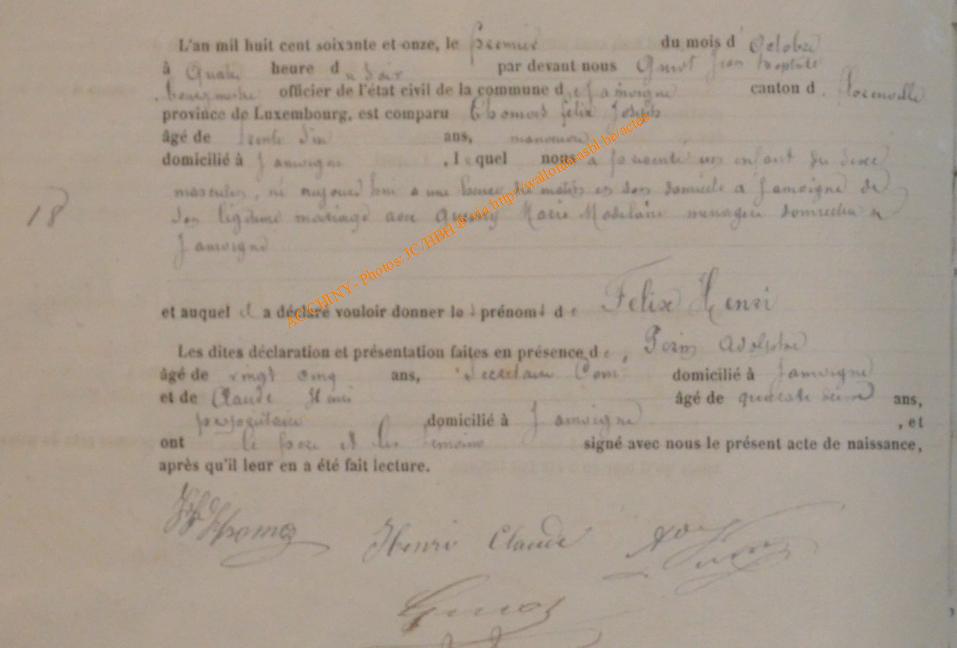 L'an mil huit cent soixante et onze, le premier du mois d' octobre
à Quatre heure du Soir par devant nous Jean Baptiste
Bourgmestre officier de l'état civil de la commune de Jamoigne canton d. Florenville
province de Luxembourg, est comparu Thomas Felix Joseph
âgé de trente d'un ans, manoeuvre
domicilié à Jamoigne , lequel nous a présenté un enfant du sexe
masculin, né aujourd'hui a une heure du matin en son domicile a Jamoigne de
18
son légitime mariage avec Marie Madelaine menagere domiciliée a
Jamoigne
et auquel il a déclaré vouloir donner les prénoms de Felix Henri
Les dites déclaration et présentation faites en présence de , Perin Adolphe
âgé de vingt cinq ans, Secretaire Com domicilié à Jamoigne
et de Claude Henri âgé de quarante ans,
propriétaire domicilié à Jamoigne , et
ont le pere et les temoins signé avec nous le présent acte de naissance,
après qu'il leur en a été fait lecture.
Henri Claude
AC CHINY - Photos: JC /HBH @ via http://wallonia-asbl.be/actes